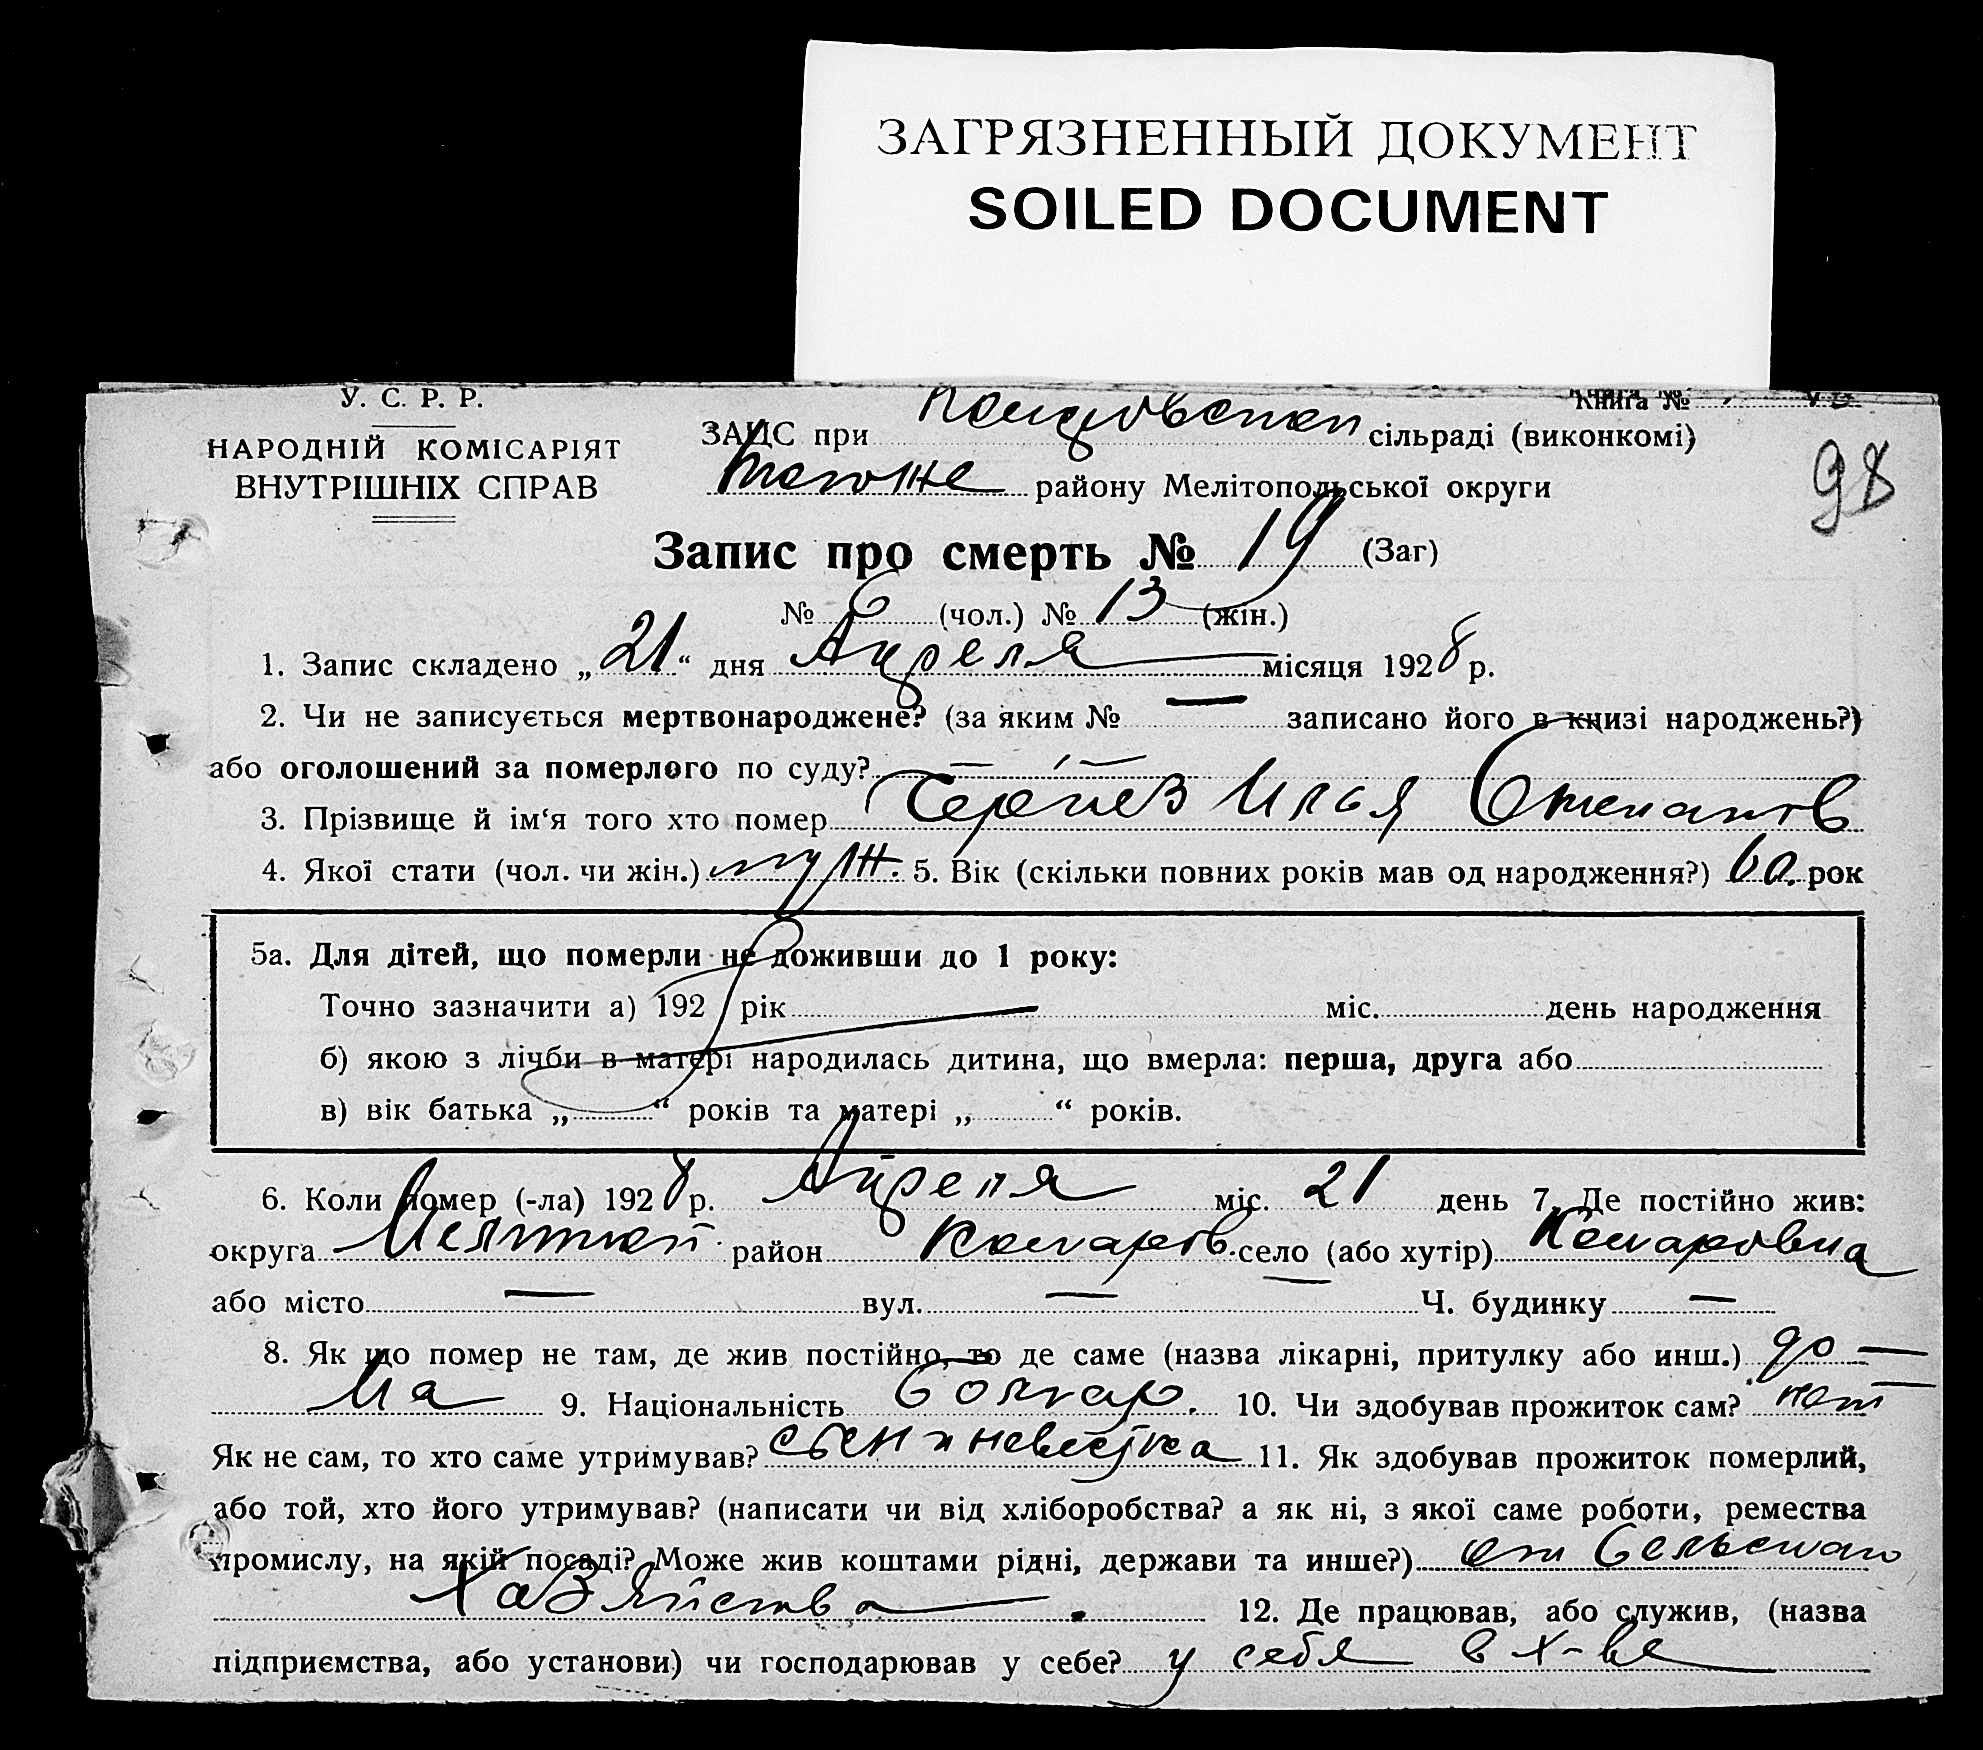 ЗАГРЯЗНЕННЫЙ ДОКУМЕНТ
SOILED DOCUMENT
У. С. Р. Р.
Книга №
НАРОДНІЙ КОМІСАРІЯТ
ВНУТРІШНІХ СПРАВ
ЗАЦС при сільраді (виконкомі)
району Мелітопольської округи
98
Запис про смерть № 19 (Заг)
№ 6 (чол.) № 13 (жін.)
1. Запис складено „21“ дня Апреля місяця 1928 р.
2. Чи не записується мертвонароджене? (за яким № — записано його в книзі народжень?)
або оголошений за померлого по суду? — " —
3. Прізвище й ім‘я того хто помер Илья Степанов
4. Якої стати (чол. чи жін.) муж. 5. Вік (скільки повних років мав од народження?) 60. рок
5а. Для дітей, що померли не доживши до 1 року:
Точно зазначити а) 192 рік міс. день народження
б) якою з лічби в матері народилась дитина, що вмерла: перша, друга або
в) вік батька „ “ років та матері „ “ років.
6. Коли помер (-ла) 1928 р. Апреля міс. 21 день 7. Де постійно жив:
округа район Комаров. село (або хутір) Комаровка
або місто — вул. — Ч. будинку —
8. Як що помер не там, де жив постійно, то де саме (назва лікарні, притулку або инш.) до-
ма 9. Національність болгар. 10. Чи здобував прожиток сам? нет
Як не сам, то хто саме утримував? сын и невестка 11. Як здобував прожиток померлий,
або той, хто його утримував? (написати чи від хліборобства? а як ні, з якої саме роботи, ремества
промислу, на якій посаді? Може жив коштами рідні, держави та инше?) от Сельскаго
Хазяйства. 12. Де працював, або служив, (назва
підприємства, або установи) чи господарював у себе? у себя в х-ве